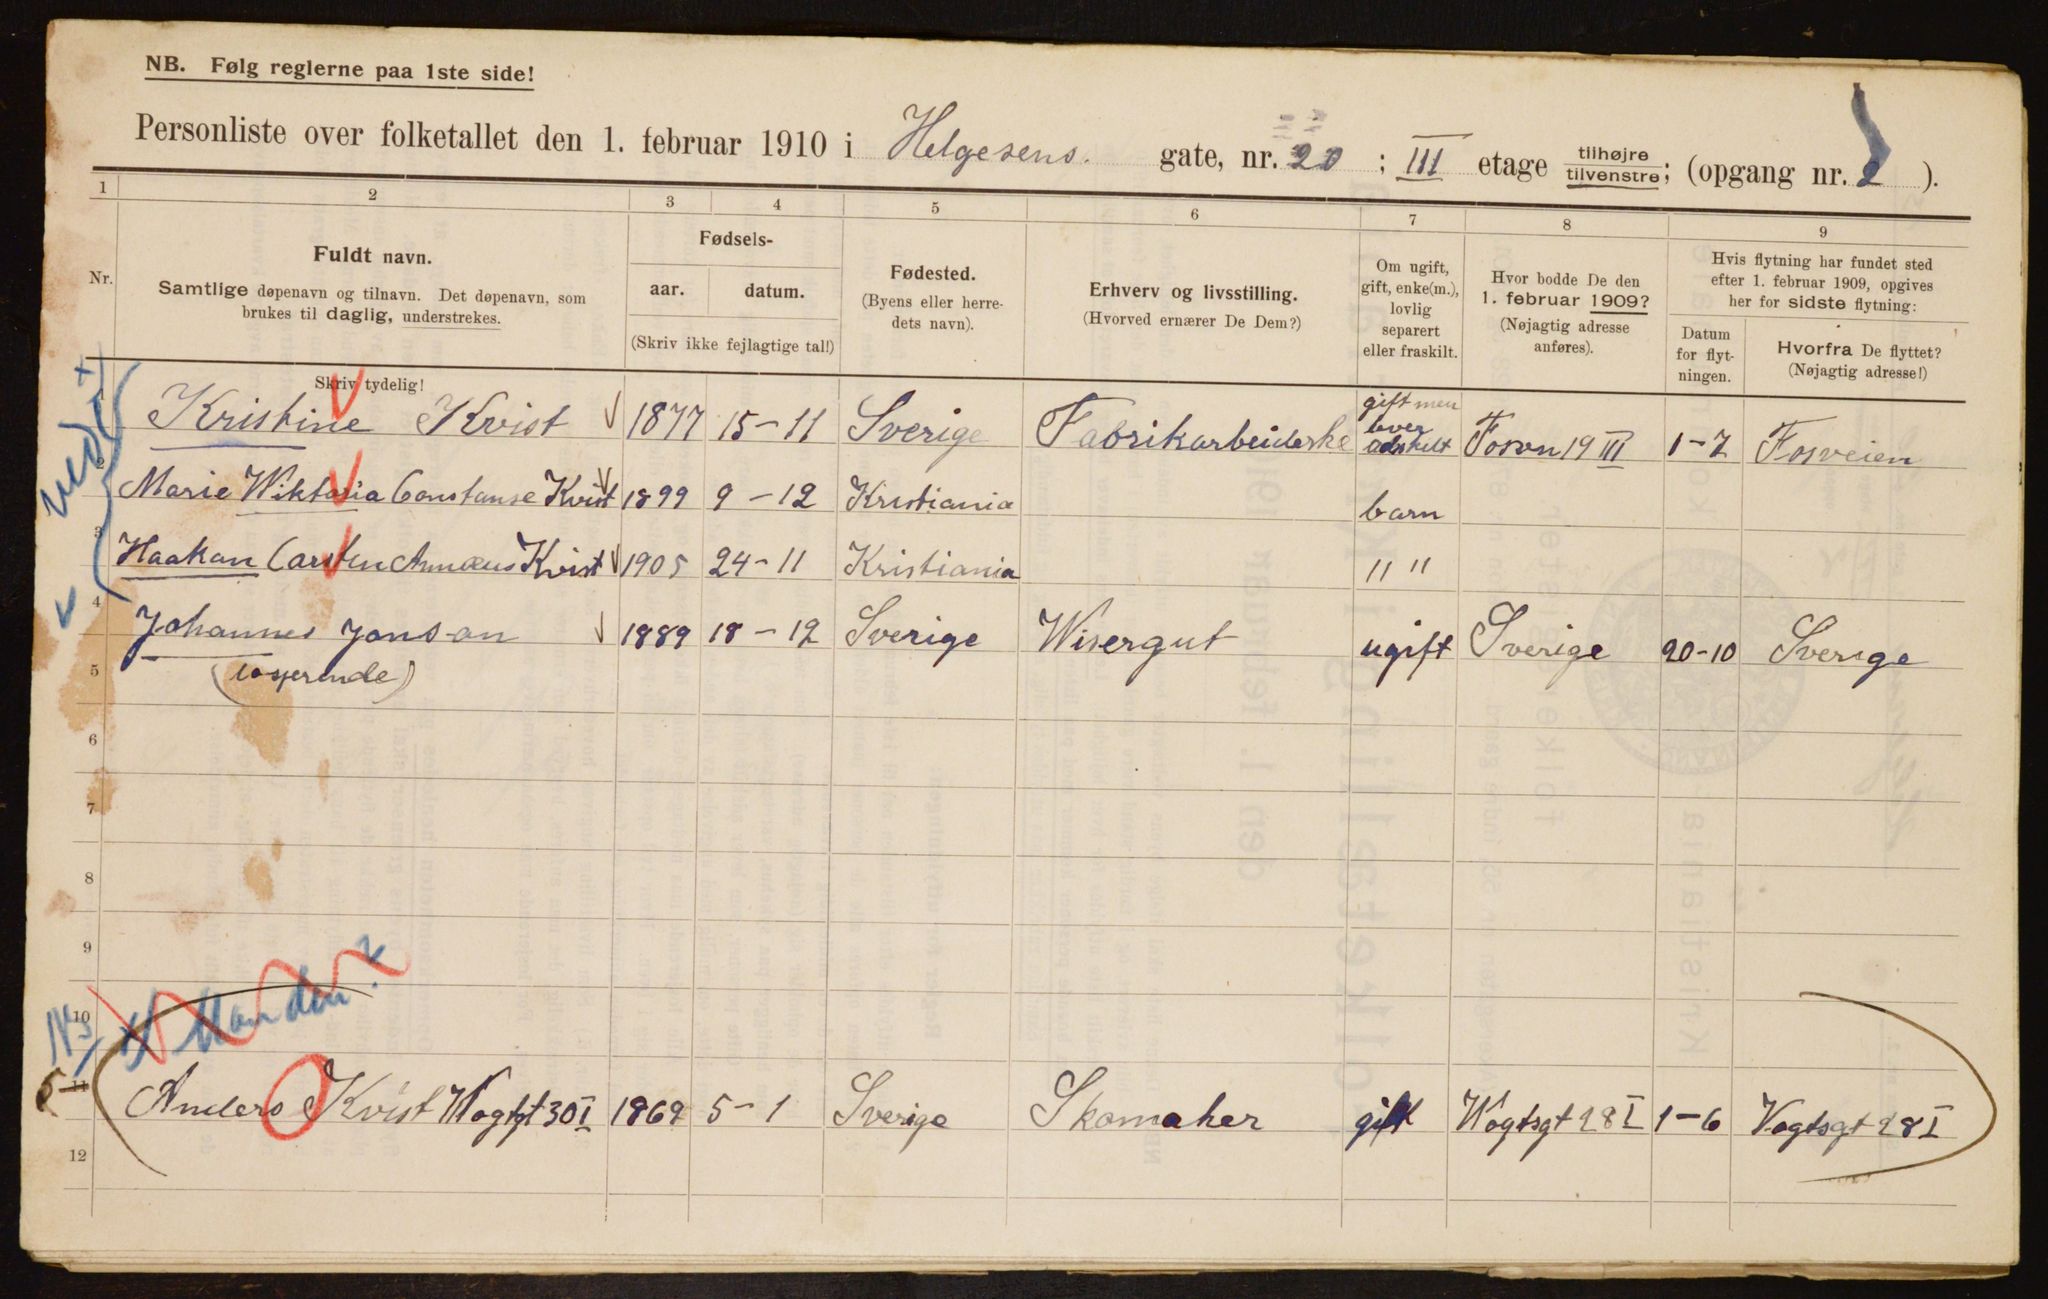 NB. Følg reglerne paa 1ste side!
Personliste over folketallet den 1. februar 1910 i Helgesens. gate, nr. 20 ; III etage tilhøjre tilvenstre; (opgang nr. 2 ).
1 2 3 4 5 6 7 8 9
Nr.
Fuldt navn.
Samtlige døpenavn og tilnavn. Det døpenavn, som
brukes til daglig, understrekes.
Skriv tydelig!
Fødsels-
aar. datum.
(Skriv ikke fejlagtige tal!)
Fødested.
(Byens eller herre-
dets navn).
Erhverv og livsstilling.
(Hvorved ernærer De Dem?)
Om ugift,
gift, enke(m.),
lovlig
separert
eller fraskilt.
Hvor bodde De den
1. februar 1909?
(Nøjagtig adresse
anføres).
Hvis flytning har fundet sted
efter 1. februar 1909, opgives
her for sidste flytning:
Datum
for flyt-
ningen.
Hvorfra De flyttet?
(Nøjagtig adresse!)
Kristine Kvist 1877 15-11 Sverige Fabrikarbeiderske gift men lever adskilt Fosvn 19 III 1-7 Fosveien
2 Marie Wiktoria Constanse Kvist 1899 9-12 Kristiania barn
3 Haakan Carsten Kvist 1905 24-11 Kristiania " "
4 Johannes Jonson 1889 18-12 Sverige Wisergut ugift Sverige 20-10 Sverige
5 (losjerende)
6
7
8
9
10 Manden?
11 Anders Kvist Wogtgt 30 I 1869 5-1 Sverige Skomaker gift Wogtsgt 28 I 1-6 Vogtsgt 28 I
12